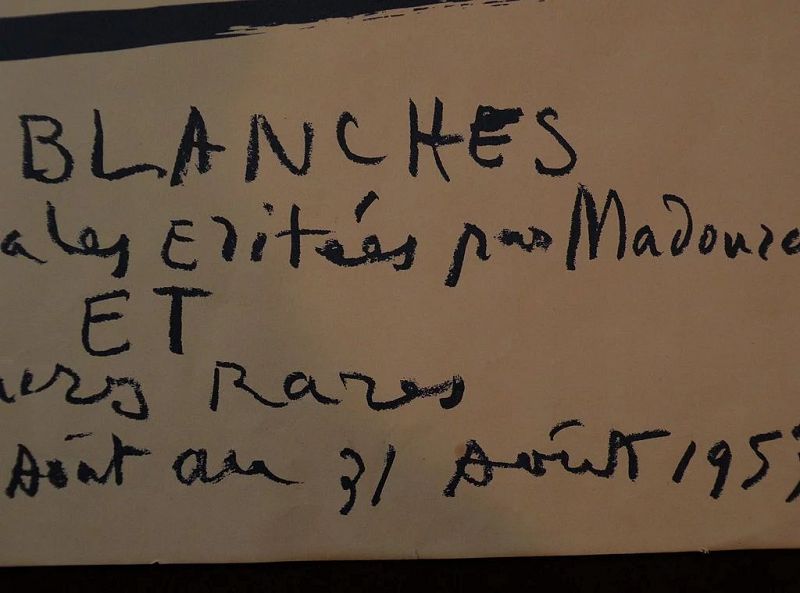 BLANCHES
ales Editées par Madoura
ET
Rares
Août au 31 Août 195